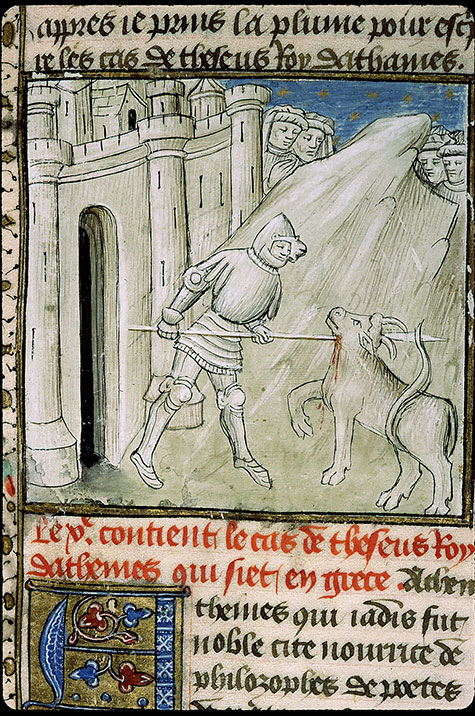 appres ie prins la plume pour escp
re les cas de theseus Roy dathaines.
Le xe. contient le cas de theseus Roy
dathenes qui siet en grece. Athen
thenes qui iadis fut
noble cite nourrice de
philozophes de poetes